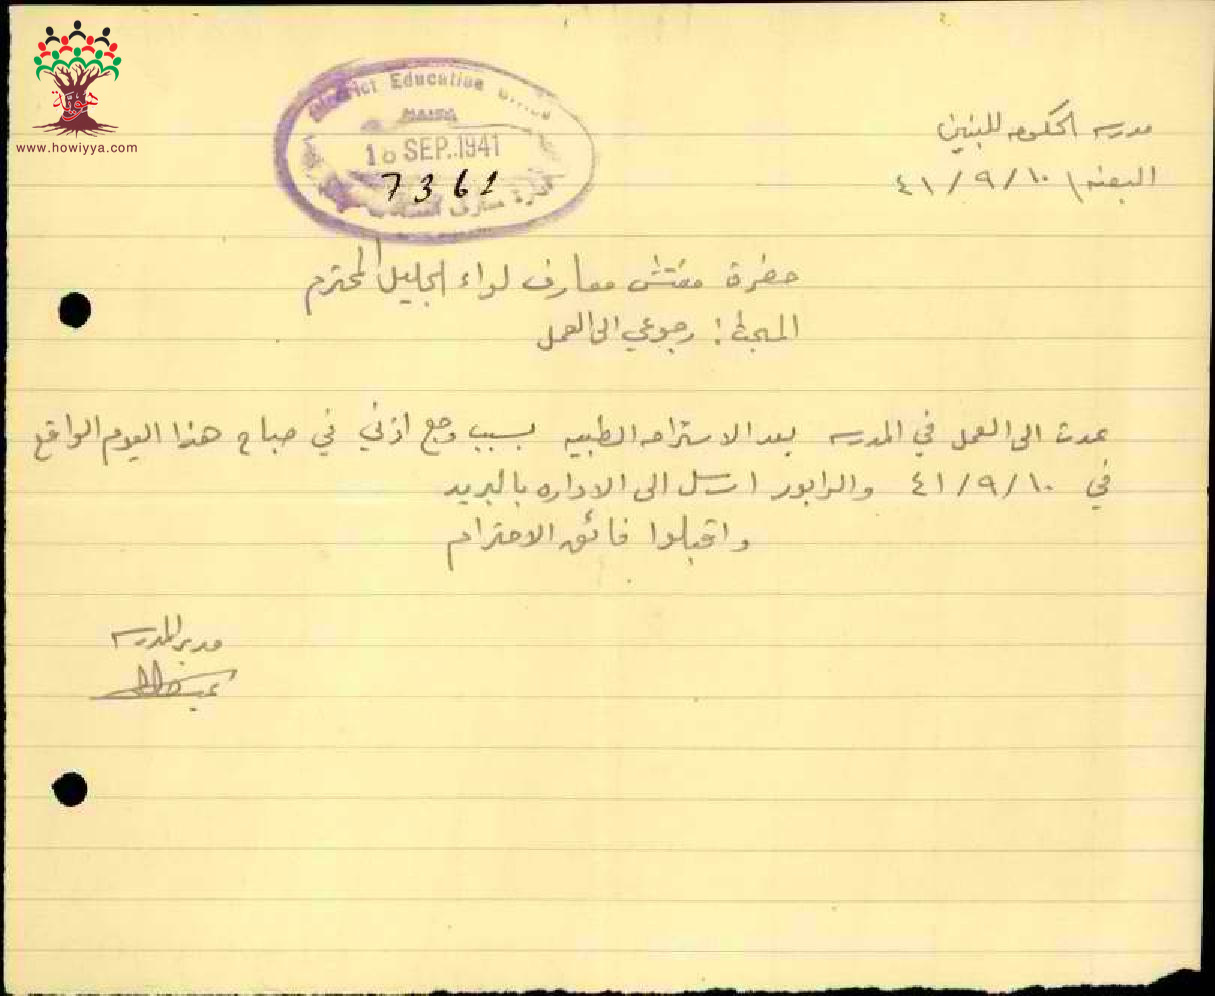 هوية
www.howiyya.com
District Education Office
HAIFA
10 SEP. 1941
7361
ادارة معارف
مدرسه الحكومه للبنين
البعنه / ١٠ / ٩ / ٤١
حضرة مفتش معارف لواء الجليل المحترم
المبحث : رجوعي الى العمل
عدت الى العمل في المدرسه بعد الاستراحه الطبيه بسبب وجع اذني في صباح هذا اليوم الواقع
في ١٠ / ٩ / ٤١ والرابور ارسل الى الاداره بالبريد
واقبلوا فائق الاحترام
مدير المدرسه